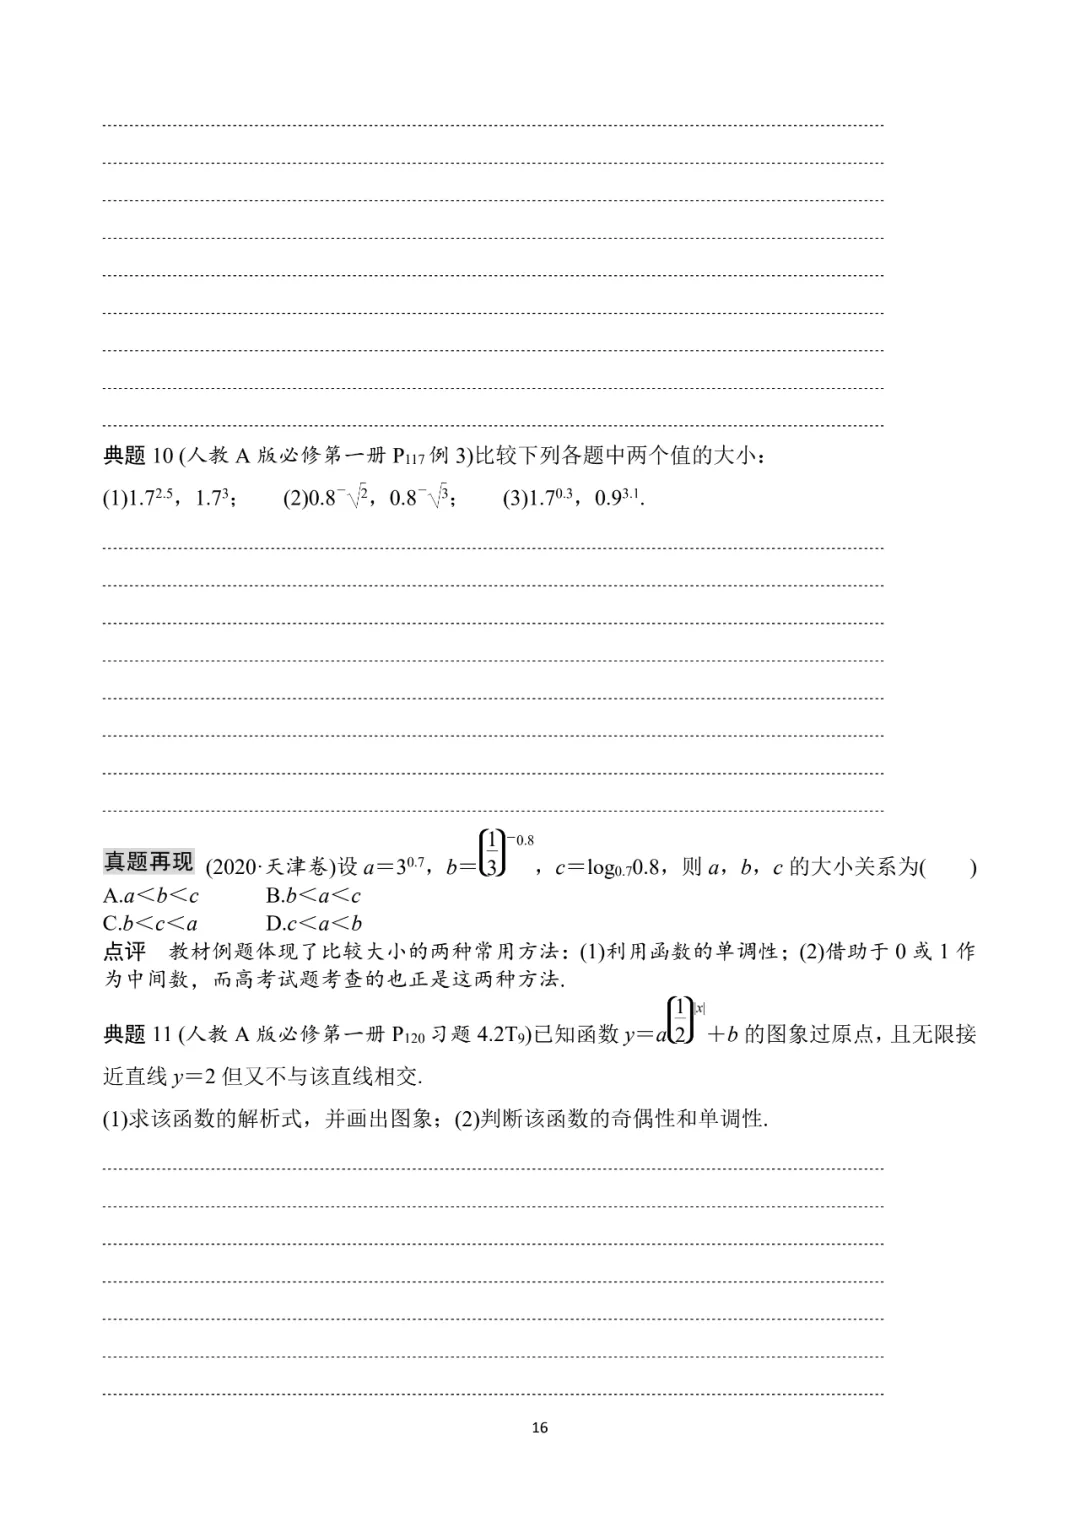 典题 10 (人教 A 版必修第一册 P₁₁₇例 3)比较下列各题中两个值的大小：
(1)1.7²·⁵，1.7³； (2)0.8^－√2，0.8^－√3； (3)1.7⁰·³，0.9³·¹.
真题再现 (2020·天津卷)设 a＝3⁰·⁷，b＝(1/3)^－0.8，c＝log₀.₇0.8，则 a，b，c 的大小关系为( )
A.a＜b＜c B.b＜a＜c
C.b＜c＜a D.c＜a＜b
点评 教材例题体现了比较大小的两种常用方法：(1)利用函数的单调性；(2)借助于 0 或 1 作
为中间数，而高考试题考查的也正是这两种方法.
典题 11 (人教 A 版必修第一册 P₁₂₀ 习题 4.2T₉)已知函数 y＝a(1/2)^|x|＋b 的图象过原点，且无限接
近直线 y＝2 但又不与该直线相交.
(1)求该函数的解析式，并画出图象；(2)判断该函数的奇偶性和单调性.
16